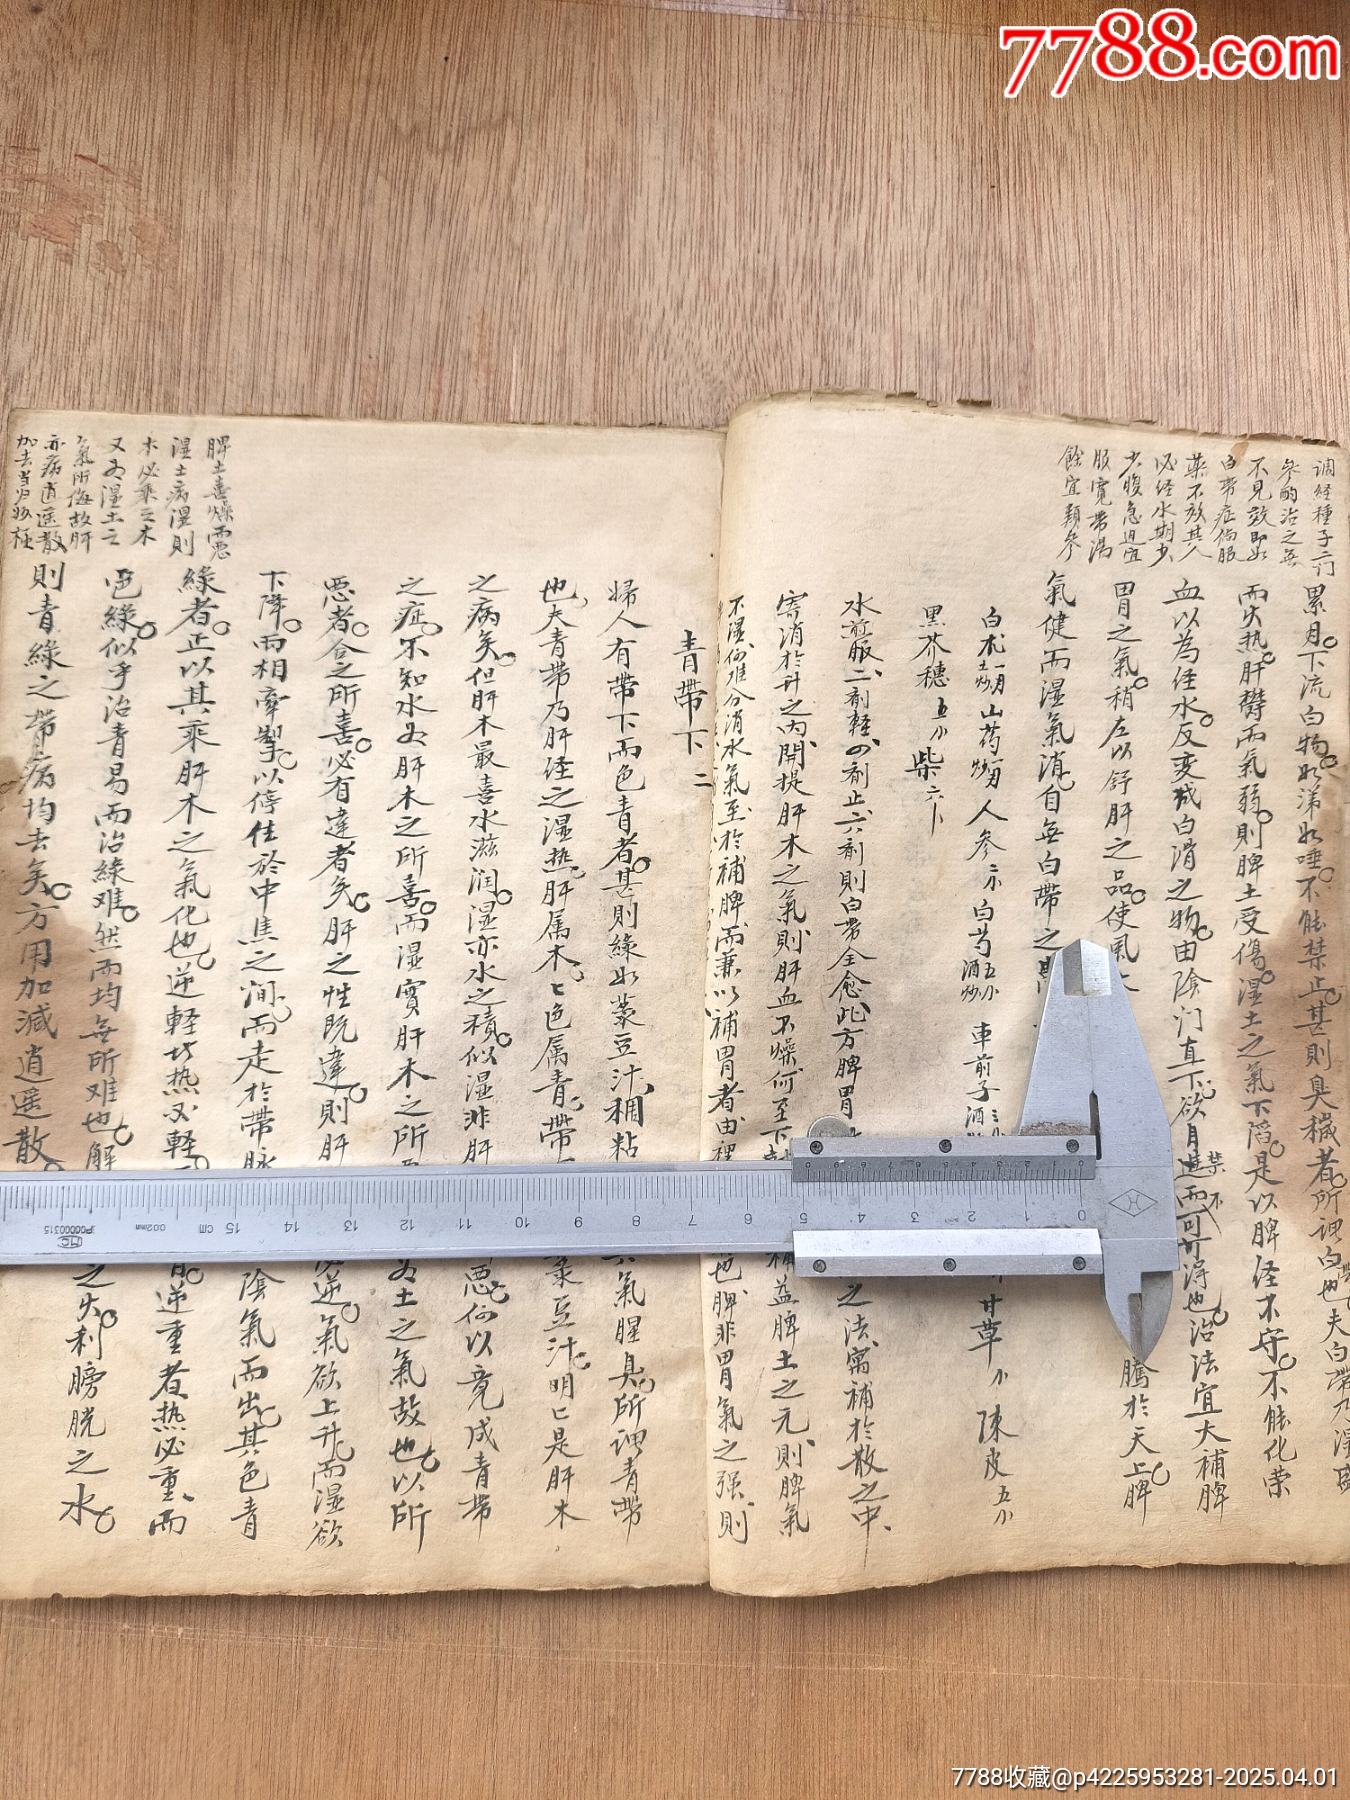 7788.com
调经種子六门
參酌治之無
不見效即如
白帶症倘服
藥不效其人
必經水期少
少腹急迫宜
服寬带湯
餘宜類參
累月下流白物如涕如唾不能禁止甚則臭穢者所谓白帶也夫白帶乃湿盛
而火热肝鬱而氣弱則脾土受傷湿土之氣下陷是以脾经不守不能化荣
血以為经水反变成白滑之物由陰门直下欲自禁而不可得也治法宜大補脾
胃之氣稍左以舒肝之品使氣
騰於天上脾
氣健而湿氣消自無白帶之
白朮一两土炒山药一两炒人參二小白芍五小酒炒
車前子三小酒
甘草一小陳皮五小
黑芥穗五小柴六卜
水煎服二剂軽四剂止六剂則白带全愈此方脾胃
之法寓補於散之中
寄消於升之内開提肝木之氣則肝血不燥何至下
補益脾土之元則脾氣
不湿何难分消水氣至於補脾而兼以補胃者由裡
也脾非胃氣之强則
青帶下二
婦人有帶下而色青者甚則綠如菉豆汁稠粘
其氣腥臭所谓青帶
也夫青帶乃肝经之湿热肝属木七色属青帶
菉豆汁明明是肝木
之病矣但肝木最喜水滋润湿亦水之積似湿非肝
惡何以竟成青帶
之症不知水为肝木之所喜而湿實肝木之所
为土之氣故也以所
惡者合之所喜必有違者矣肝之性既違則肝
必逆氣欲上升而湿欲
下降两相牽掣以停住於中焦之间而走於帶脉
陰氣而出其色青
綠者正以其乘肝木之氣化也逆軽者热必軽
青逆重者热必重而
色綠似乎治青易而治綠难然而均無所难也解
之火利膀胱之水
則青綠之带病均去矣方用加減逍遥散
脾土喜燥而惡
湿土病湿則
木必乘之木
又为湿土之
氣所侮故肝
亦病逍遥散
加去当归妙極
0 1 2 3 4 5 6 7 8 9 10 11 12 13 14 15 cm 0.02mm P00000315
7788收藏@p4225953281-2025.04.01